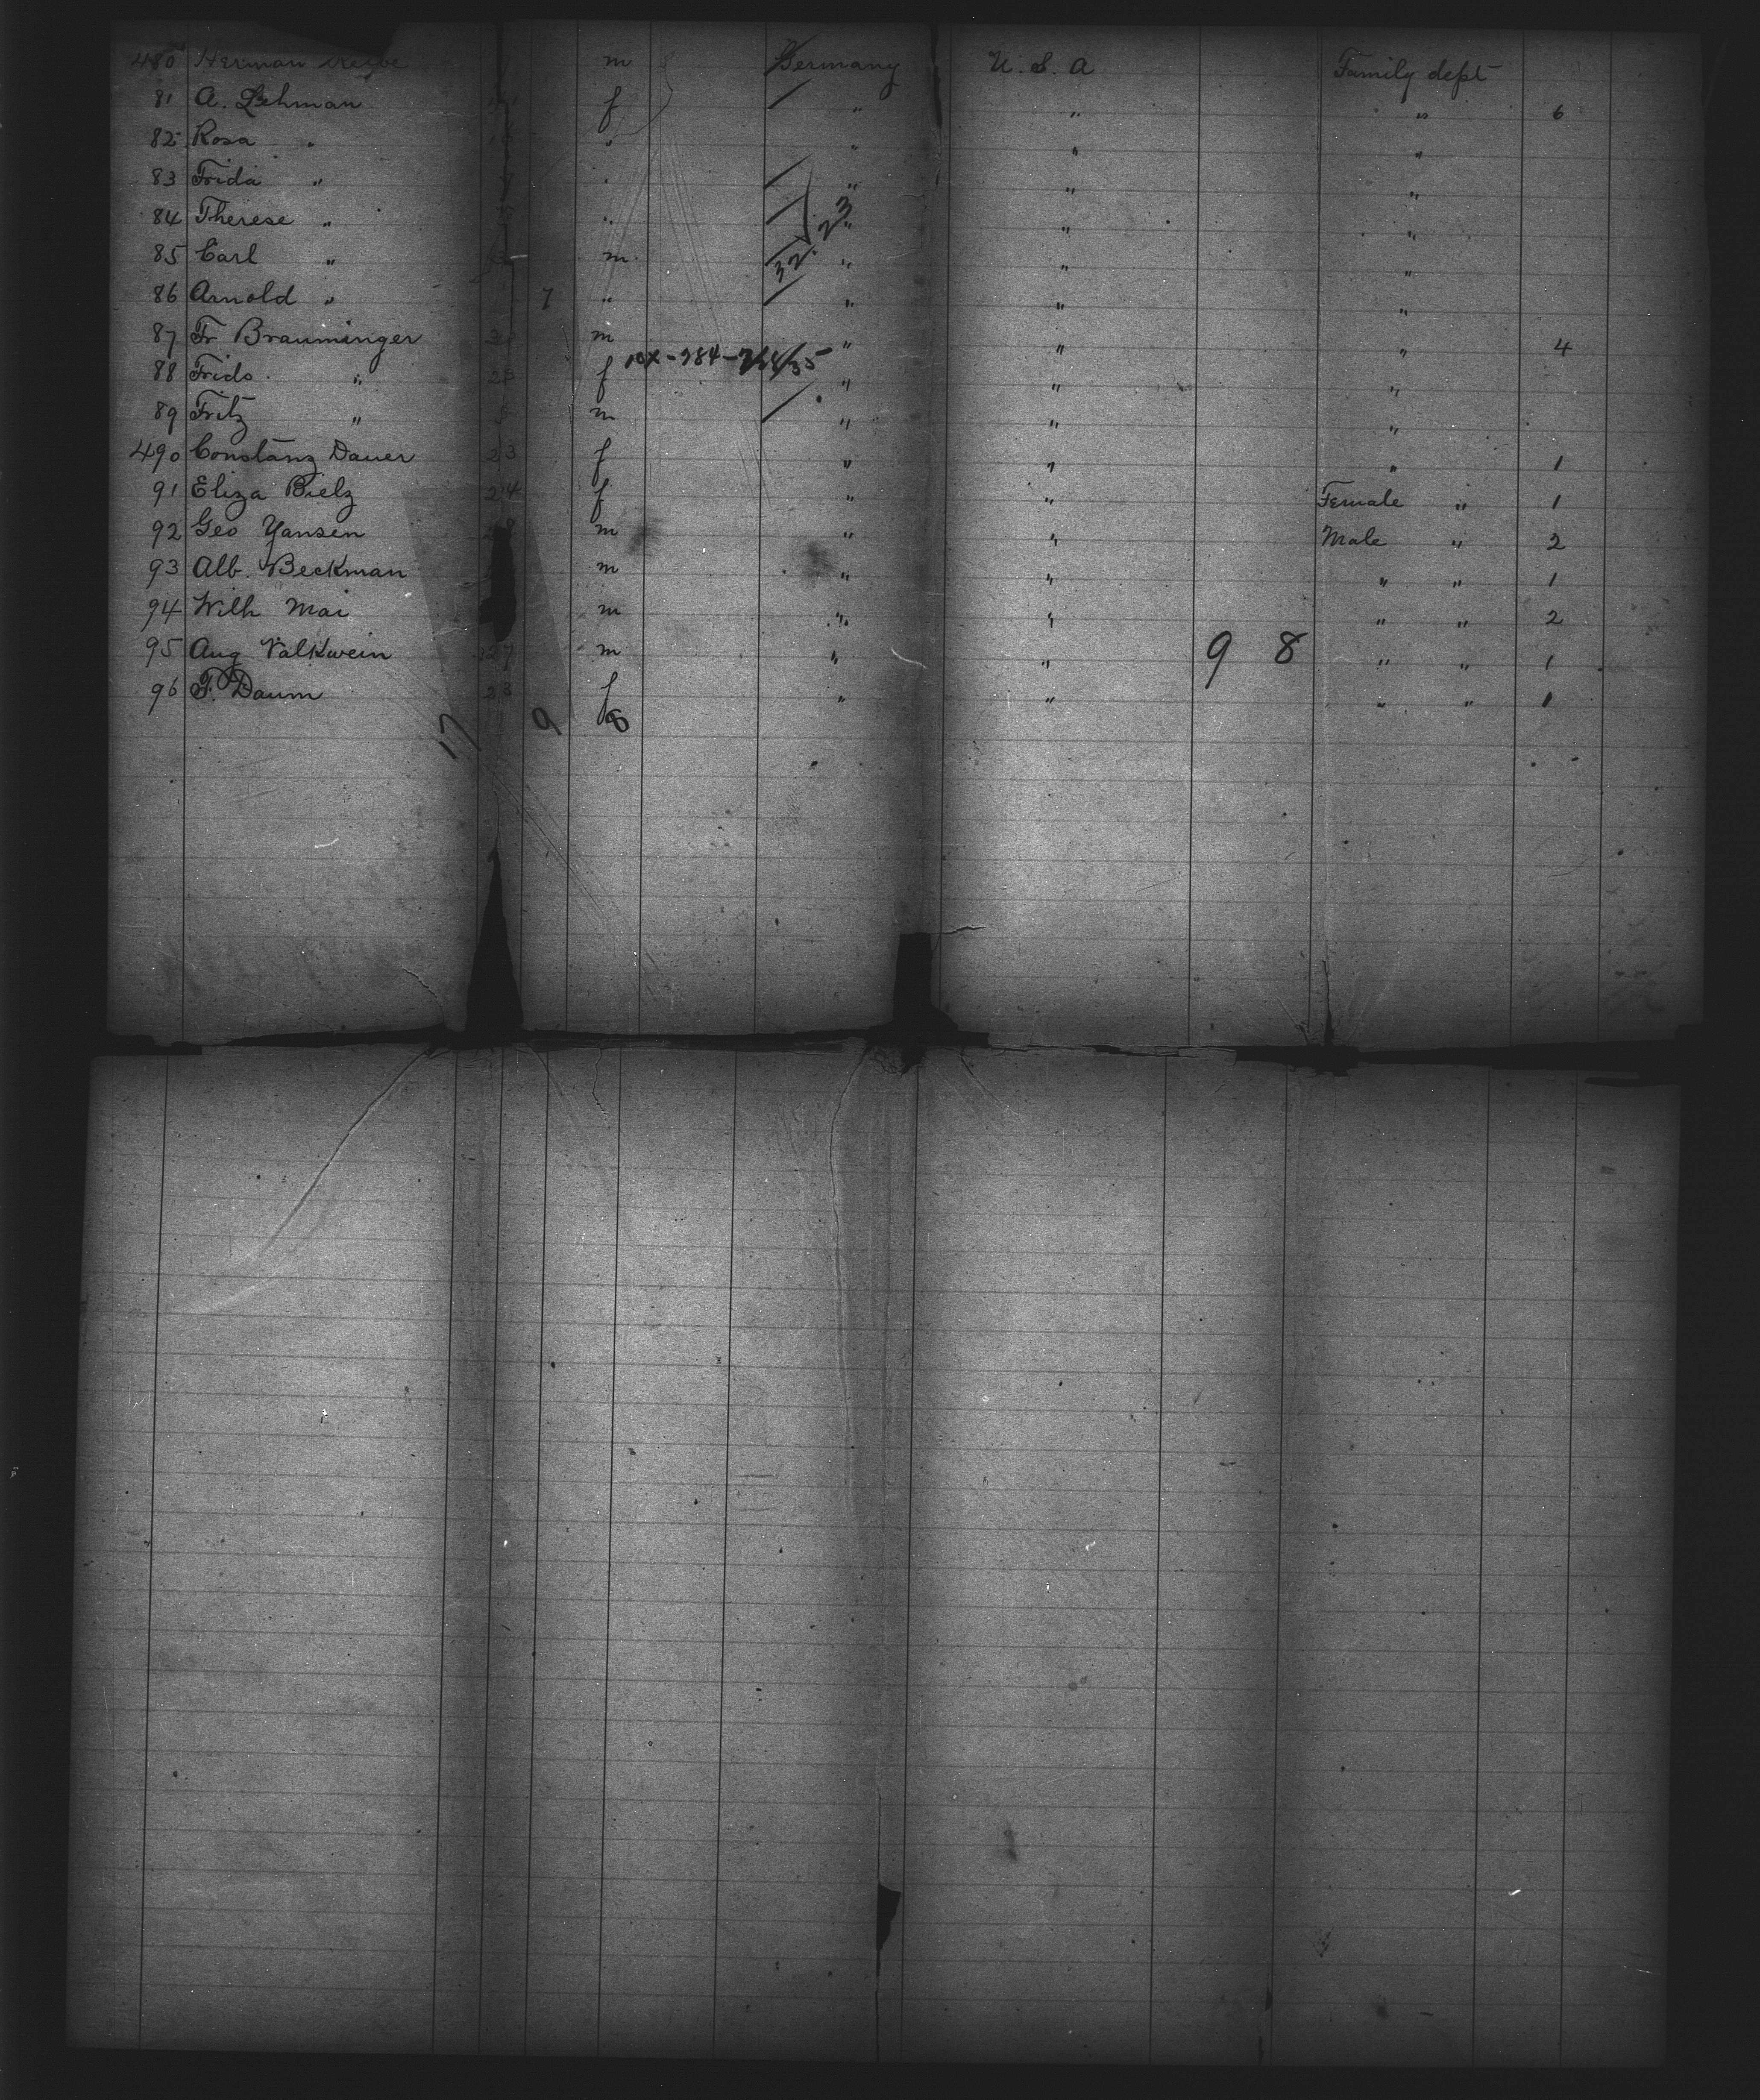 480 Herman m Germany U. S. A Family dept
81 A. Lehman f " " " 6
82 Rosa " " " " "
83 Frida " " " " "
84 Therese " " " " "
85 Carl " m " " "
86 Arnold " 7 " " " "
87 Fr Brauminger m " " " 4
88 Frido " 23 f " " "
89 Fritz " m " " "
490 Constanz Dauer 23 f " " " 1
91 Eliza Bielz 24 f " " Female " 1
92 Geo Yansen m " " Male " 2
93 Alb. Beckman m " " " " 1
94 Wilh Mai m " " " " 2
95 Aug Valkwein 27 m " " 9 8 " " 1
96 F. Daum 23 f " " " " 1
17 9 8